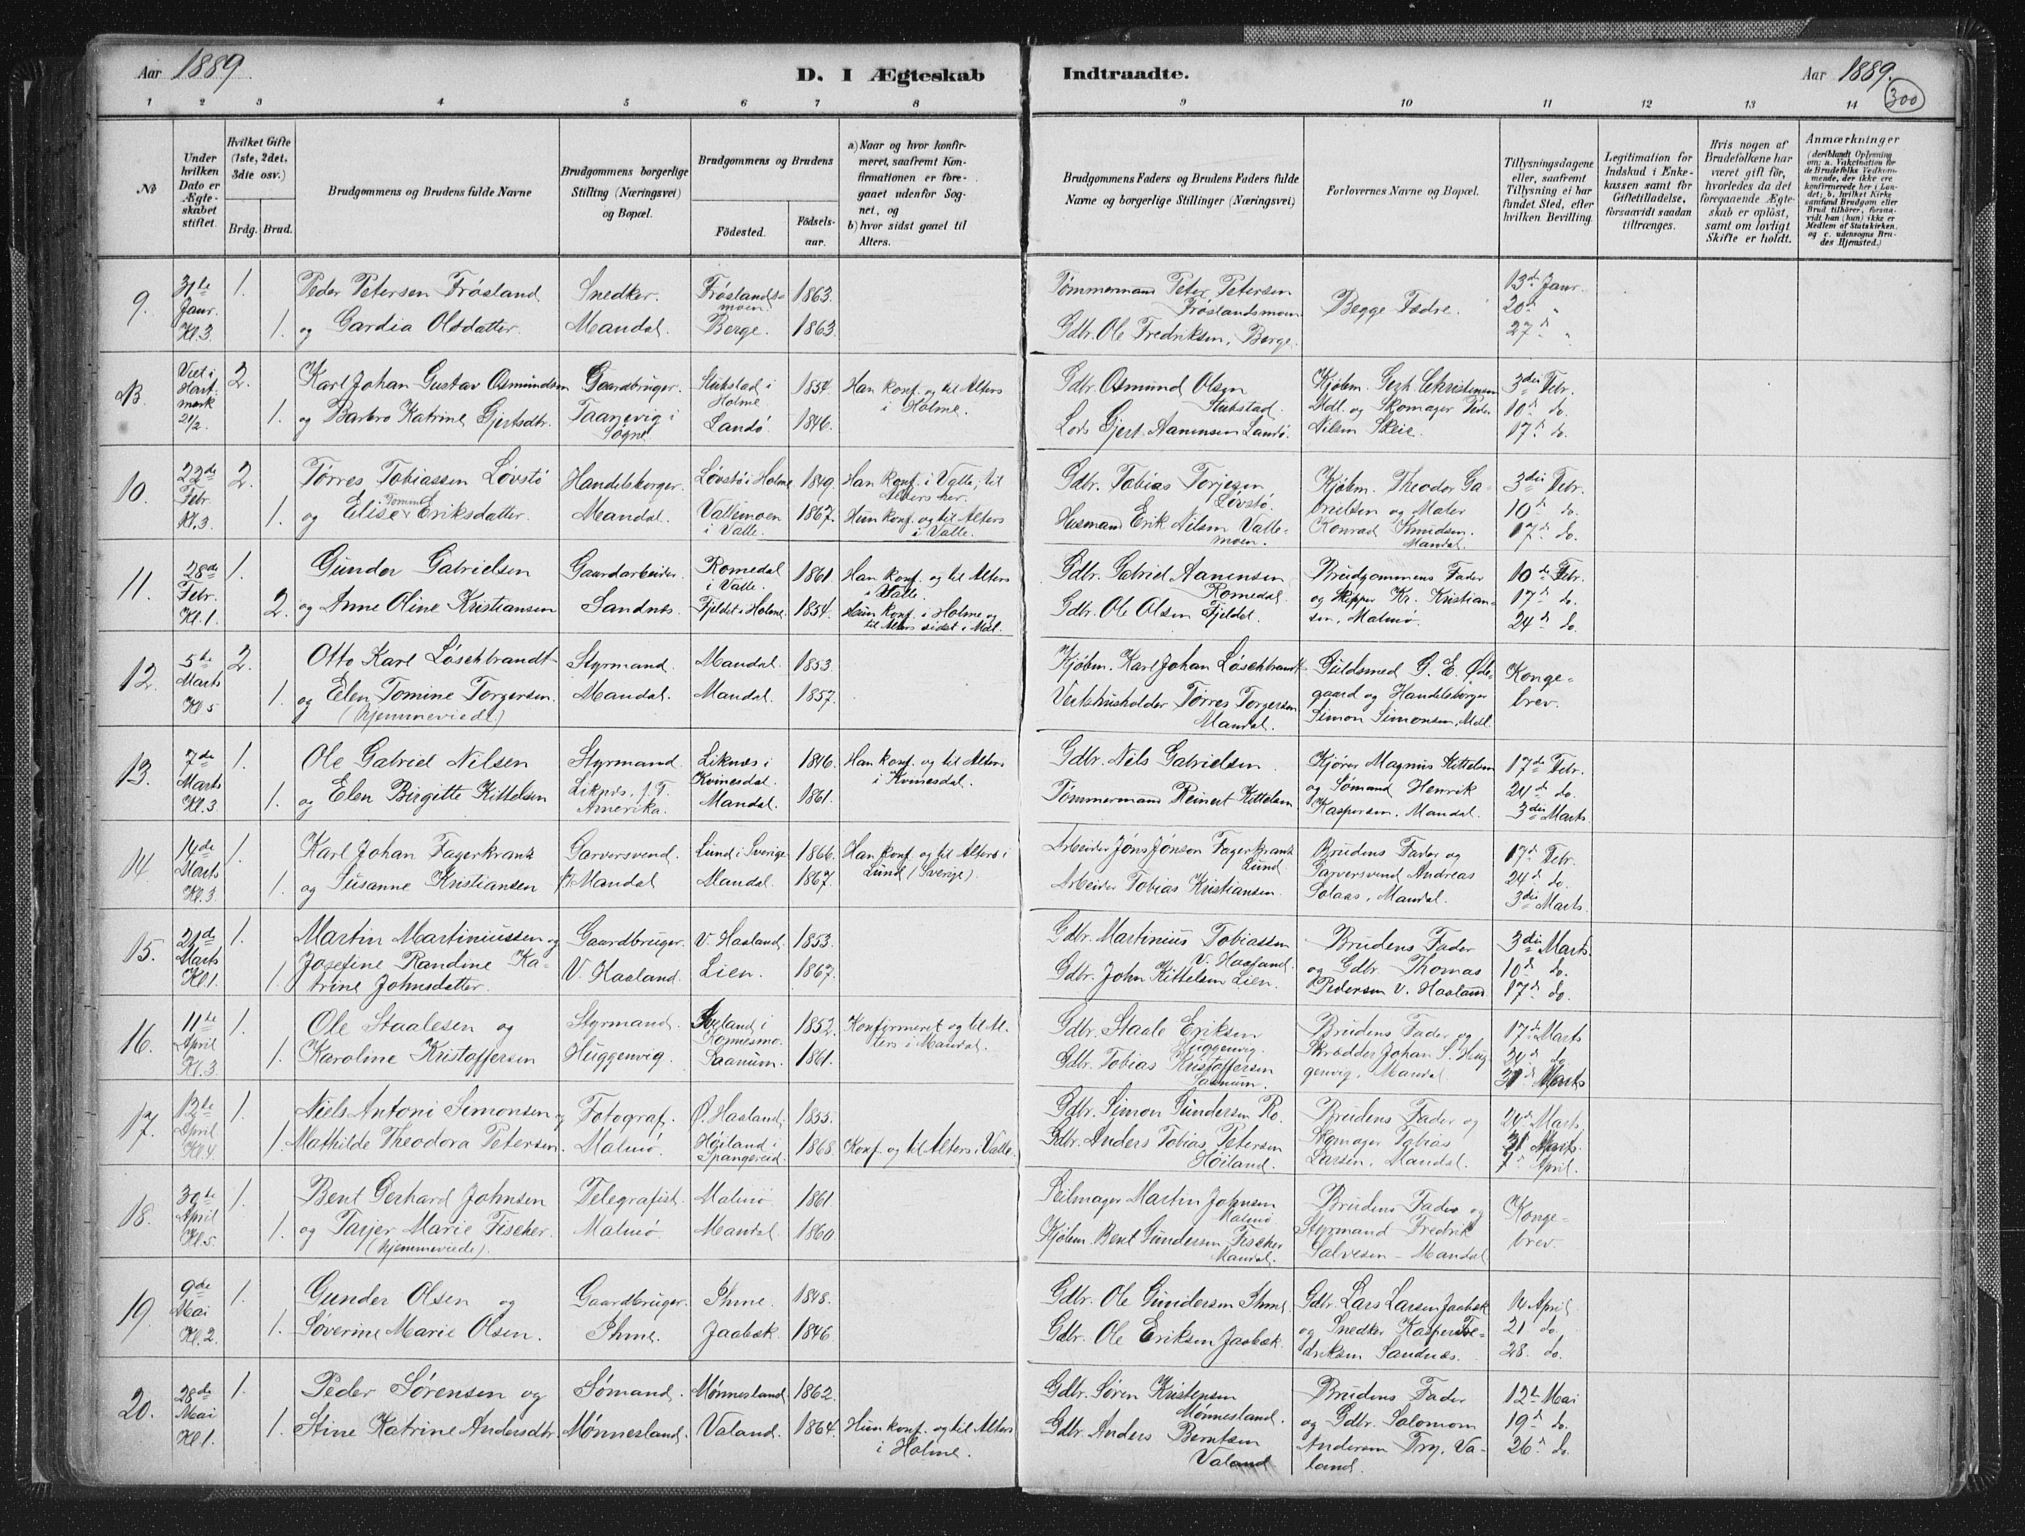 Aar 1889.
D. I Ægteskab Indtraadte.
Aar 1889.
300
1 2 3 4 5 6 7 8 9 10 11 12 13 14
No
Under hvilken Dato er Ægteskabet stiftet.
Hvilket Gifte (1ste, 2det, 3die osv.)
Brdg. Brud.
Brudgommens og Brudens fulde Navne
Brudgommens borgerlige Stilling (Næringsvei) og Bopæl.
Brudgommens og Brudens
Fødested.
Fødselsaar.
a) Naar og hvor konfirmeret, saafremt Konfirmationen er foregaaet udenfor Sognet, og
b) hvor sidst gaaet til Alters.
Brudgommens Faders og Brudens Faders fulde Navne og borgerlige Stillinger (Næringsvei)
Forlovernes Navne og Bopæl.
Tillysningsdagene eller, saafremt Tillysning ei har fundet Sted, efter hvilken Bevilling.
Legitimation for Indskud i Enkekassen samt for Giftetilladelse, forsaavidt saadan tiltrænges.
Hvis nogen af Brudefolkene har været gift før, hvorledes da det foregaaende Ægteskab er opløst, samt om lovligt Skifte er holdt.
Anmærkninger
(deriblandt Oplysning om: a. Vakcination for de Brudefolks Vedkommende, der ikke ere konfirmerede her i Landet; b. hvilket Kirkesamfund Brudgom eller Brud tilhører, forsaavidt han (hun) ikke er Medlem af Statskirken, og c. udensogns Brudes Hjemsted.)
9. 31te Janr. Kl. 3 1. Peder Petersen Frøsland Snedker. Frøslandsmoen. 1863. Tømmermand Peter Petersen Frøslandsmoen Begge Fædre. 13de Janr. 20d "
1. og Gardia Olsdatter. Mandal. Berge. 1863 Gdbr. Ole Fredriksen, Berge. 27d "
13. Viet i Hartmark 21/2 2. Karl Johan Gustav Osmundsen Gaardbruger. Stubstad i Holme 1854. Han konf. og til Alters i Holme. Gdbr. Osmund Olsen Stubstad. Kjøbm. Gert Christensen Mdl. og Skomager Peder Nilsen Skeie. 3die Febr. 10d do. 17d do.
1. og Barbro Katrine Gjertsdtr. Taanevig i Søgne Landø. 1846. Lods Gjert Aanensen Landø.
10. 22de Febr. Kl. 3. 2. Tørres Tobiassen Løvstø Handelsborger. Løvstø i Holme 1849. Han konf. i Valle, til Alters her. Gdbr. Tobias Torjesen Løvstø. Kjøbm. Theodor Gabrielsen og Maler Konrad Knudsen Mandal. 3die Febr. 10d do. 17d do.
1. og Elise Tomine Eriksdatter. Mandal. Vallemoen i Valle. 1867. Hun konf. og til Alters i Valle. Husmand Erik Nilsen Vallemoen.
11. 28de Febr. Kl. 1. 1. Gunder Gabrielsen Gaardarbeider. Romedal i Valle 1861. Han konf. og til Alters i Valle. Gdbr. Gabriel Aanensen Romedal. Brudgommens Fader og Skipper Kr. Kristiansen, Malmø. 10de Febr. 17d do. 24d do.
2. og Anne Oline Kristiansen Sandnes. Fjeldet i Holme. 1854. Hun konf. i Holme og til Alters sidst i Mdl. Gdbr. Ole Olsen Fjeldet.
12. 5te Marts Kl. 5 2. Otto Karl Löschbrandt Styrmand. Mandal. 1853. Kjøbm. Karl Johan Löschbrandt Guldsmed G. E. Ødegaard og Handelsborger Simon Simonsen, Mdl. Kongebrev.
1. og Elen Tomine Torgersen (hjemmeviede) Mandal. Mandal. 1857. Vertshusholder Tørres Torgersen Mandal.
13. 7de Marts Kl. 3 1. Ole Gabriel Nilsen Styrmand Liknes i Kvinesdal. 1846. Han konf. og til Alters i Kvinesdal. Gdbr. Nils Gabrielsen. Kjører Magnus Kittelsen og Sømand Henrik Kaspersen, Mandal. 17de Febr. 24d do. 3die Marts
1. og Elen Birgitte Kittelsen Liknes, f. T. Amerika. Mandal 1861. Tømmermand Reinert Kittelsen
14 14de Marts Kl. 3 1. Karl Johan Fagerkrantz Garversvend. Lund i Sverige 1866. Han konf. og til Alters i Lund (Sverige). Arbeider Jøns Jønson Fagerkrantz Lund. Brudens Fader og Garversvend Andreas Solaas, Mandal. 17d Febr. 24d do. 3die Marts.
1. og Susanne Kristiansen Mandal Mandal. 1867. Arbeider Tobias Kristiansen.
15. 21de Marts Kl 1. 1. Martin Martiniussen og Gaardbruger V. Haaland 1853. Gdbr. Martinius Tobiassen V. Haaland. Brudens Fader og Gdbr. Thomas Pedersen V. Haaland 3die Marts. 10d do. 17d do.
1. Josefine Randine Katrine Johnsdatter. V. Haaland. Lien. 1867. Gdbr. John Kittelsen Lien.
16. 11te April Kl. 3 1. Ole Staalesen og Styrmand. i 1852. Konfirmeret og til Alters i Mandal. Gdbr. Staale Eriksen Huggenvig. Brudens Fader og Skrædder Johan S. Huggenvig, Mandal. 17d Marts 24d do. 31d Marts
1. Karoline Kristoffersen Huggenvig. Saanum. 1861. Gdbr. Tobias Kristoffersen Saanum.
17. 12te April Kl. 4 1. Niels Antoni Simonsen og Fotograf. Ø. Haaland. 1855. Gdbr. Simon Gundersen Ro. Brudens Fader og Skomager Tobias Larsen, Mandal. 24d Marts 31 Marts 7d April.
1. Mathilde Theodora Petersen. Malmø. Høiland i Spangereid. 1868. Konf. og til Alters i Valle. Gdbr. Anders Tobias Petersen Høiland.
18. 30te April Kl. 5 1. Bent Gerhard Johnsen Telegrafist. Malmø 1861 Seilmager Martin Johnsen Malmø Brudens Fader og Styrmand Fredrik Salvesen - Mandal Kongebrev.
1. og Tasjer Marie Fischer. (hjemmeviede). Malmø. Mandal. 1860 Kjøbm. Bent Gundersen Fischer Mandal.
19. 9de Mai Kl. 2. 1. Gunder Olsen og Gaardbruger. Ihme. 1848. Gdbr. Ole Gundersen Ihme. Gdbr. Lars Larsen Jaabæk og Snedker Kasper Fredriksen Sandnæs. 14 April 21 do. 28. do.
1. Soverine Marie Olsen. Ihme. Jaabæk 1846 Gdbr. Ole Eriksen Jaabæk
20. 28de Mai Kl 1. 1. Peder Sørensen og Sømand, Mønnesland. 1862. Gdbr. Søren Kristensen Mønnesland. Brudens Fader og Gdbr. Salomon Andersen Try, Valand. 12te Mai 19d do. 26d do.
1. Stine Katrine Andersdtr. Mønnesland. Valand. 1864. Hun konf. og til Alters i Holme. Gdbr. Anders Berntsen Valand